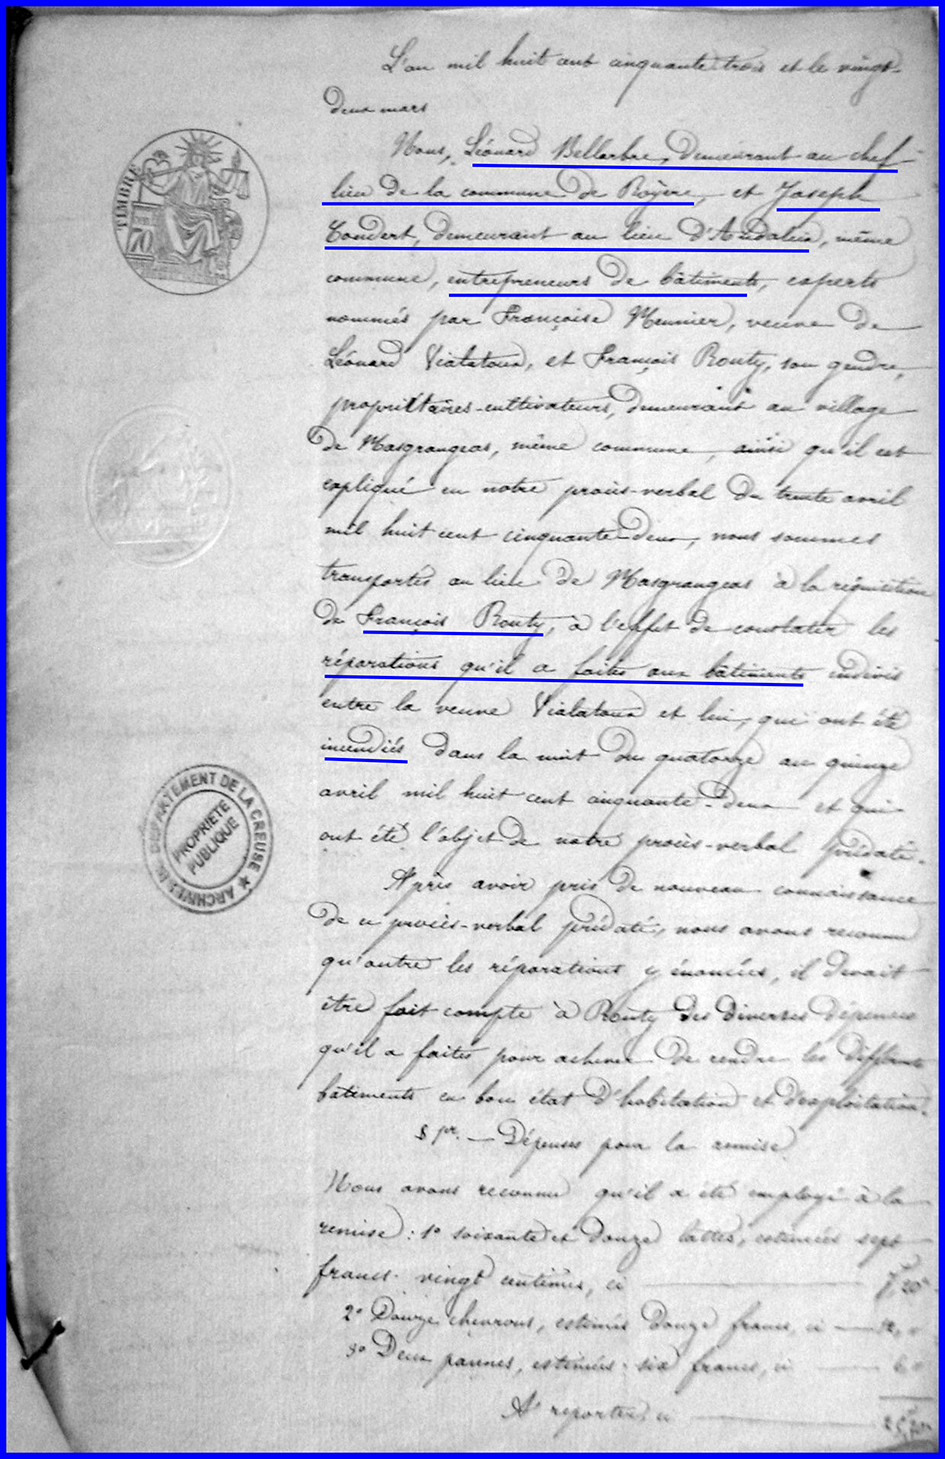 L'an mil huit cent cinquante trois et le vingt-
deux mars
Nous, Léonard Bellarbre, demeurant au chef
lieu de la commune de Royère, et Joseph
Coudert, demeurant au lieu d'Andaleix, même
commune, entrepreneurs de bâtiments, experts
nommés par Françoise Meunier, veuve de
Léonard Vialatoux, et François Routy, son gendre,
propriétaires-cultivateurs, demeurant au village
de Masgrangeas, même commune, ainsi qu'il est
expliqué en notre procès-verbal du trente avril
mil huit cent cinquante-deux, nous sommes
transportés au lieu de Masgrangeas à la réquisition
de François Routy, à l'effet de constater les
réparations qu'il a faites aux bâtiments indivis
entre la veuve Vialatoux et lui, qui ont été
incendiés dans la nuit du quatorze au quinze
avril mil huit cent cinquante-deux et qui
ont été l'objet de notre procès-verbal prédaté.
Après avoir pris de nouveau connaissance
de ce procès-verbal prédaté, nous avons reconnu
qu'outre les réparations y énoncées, il devait
être fait compte à Routy des diverses dépenses
qu'il a faites pour achever de rendre les différents
bâtiments en bon état d'habitation et d'exploitation.
§ 1er. — Dépenses pour la remise.
Nous avons reconnu qu'il a été employé à la
remise : 1° soixante et douze lattes, estimées sept
francs vingt centimes, ci 7f,20c
2° Douze chevrons, estimés douze francs, ci 12, "
3° Deux pannes, estimées six francs, ci 6 "
A reporter, ci 25f,20c
TIMBRE
ARCHIVES DU DÉPARTEMENT DE LA CREUSE
PROPRIÉTÉ
PUBLIQUE